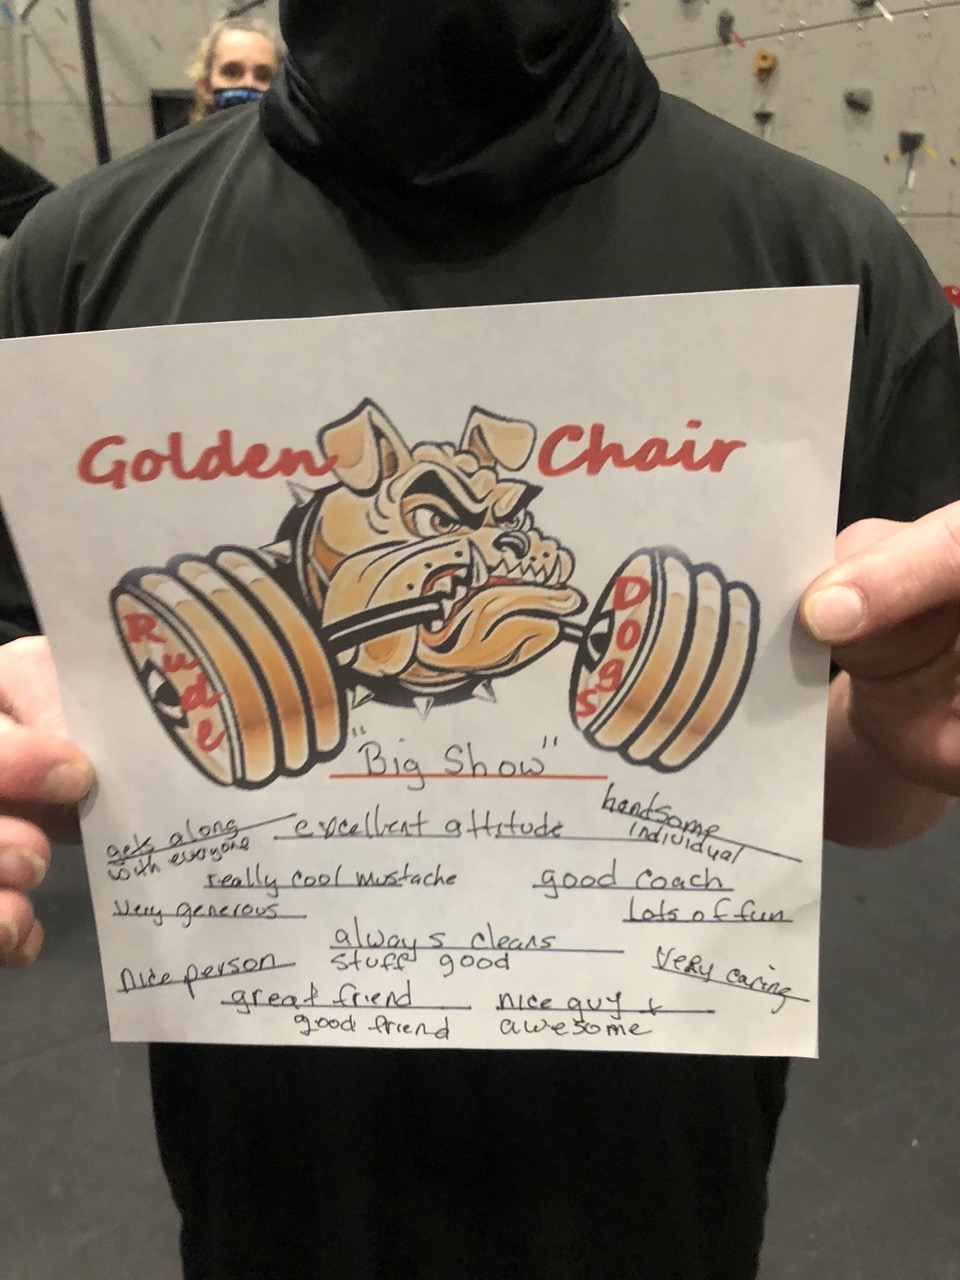 Golden Chair
Rude Dogs
"Big Show"
gets along
with everyone
excellent attitude
handsome
individual
really cool mustache
good coach
Very generous
Lots of fun
always cleans
stuff good
nice person
Very caring
great friend
good friend
nice guy +
awesome